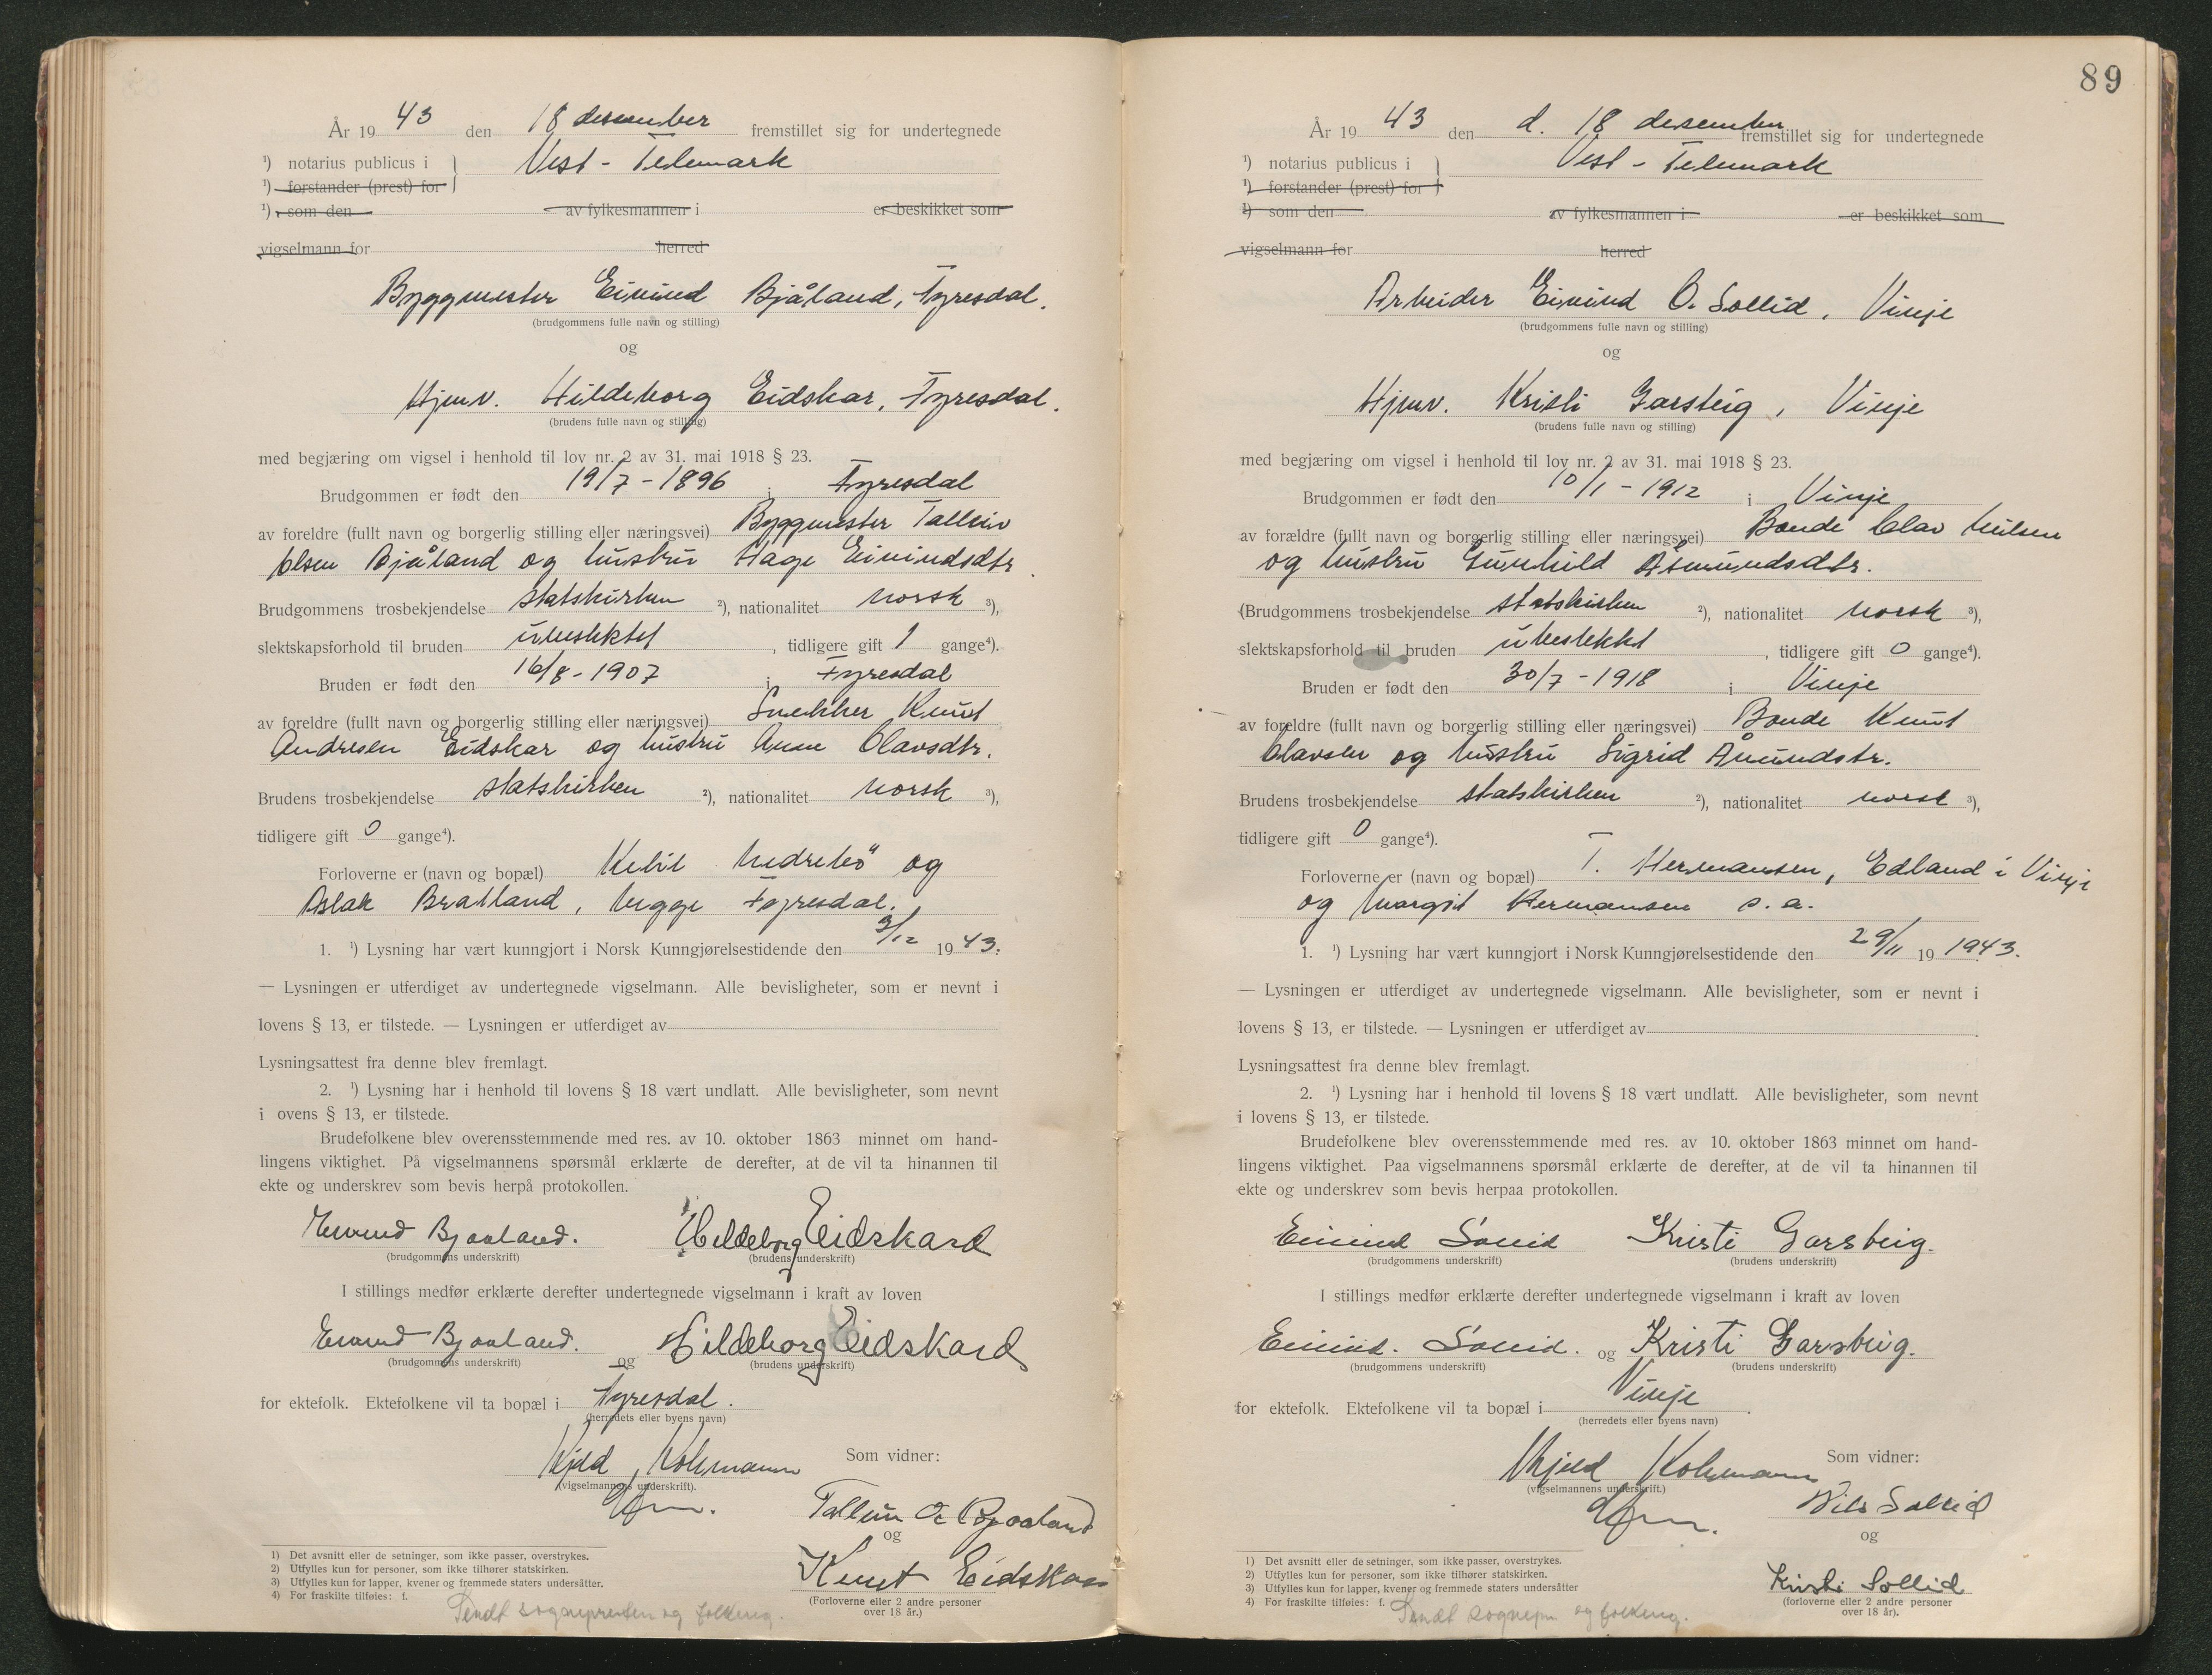 År 19 43 den 18 desember fremstillet sig for undertegnede
¹) notarius publicus i } Vest - Telemark
¹) forstander (prest) for
¹) som den av fylkesmannen i er beskikket som
vigselmann for herred
Byggmester Eivind Bjåland, Fyresdal.
(brudgommens fulle navn og stilling)
og
Hjemv. Hildeborg Eidskar, Fyresdal.
(brudens fulle navn og stilling)
med begjæring om vigsel i henhold til lov nr. 2 av 31. mai 1918 § 23.
Brudgommen er født den 19/7 - 1896 i Fyresdal
av foreldre (fullt navn og borgerlig stilling eller næringsvei) Byggmester Talleiv
Olsen Bjåland og hustru Hage Eivindsdtr.
Brudgommens trosbekjendelse statskirken ²), nationalitet norsk ³),
slektskapsforhold til bruden ubeslektet, tidligere gift 1 gange⁴).
Bruden er født den 16/8 - 1907 i Fyresdal
av foreldre (fullt navn og borgerlig stilling eller næringsvei) Snekker Knut
Andresen Eidskar og hustru Anne Olavsdtr.
Brudens trosbekjendelse statskirken ²), nationalitet norsk ³),
tidligere gift 0 gange⁴).
Forloverne er (navn og bopæl) Ketil Nedrebö og
Aslak Bratland, begge Fyresdal.
1. ¹) Lysning har vært kunngjort i Norsk Kunngjørelsestidende den 3/12 19 43.
— Lysningen er utferdiget av undertegnede vigselmann. Alle bevisligheter, som er nevnt i
lovens § 13, er tilstede. — Lysningen er utferdiget av
Lysningsattest fra denne blev fremlagt.
2. ¹) Lysning har i henhold til lovens § 18 vært undlatt. Alle bevisligheter, som nevnt
i ovens § 13, er tilstede.
Brudefolkene blev overensstemmende med res. av 10. oktober 1863 minnet om hand-
lingens viktighet. På vigselmannens spørsmål erklærte de derefter, at de vil ta hinannen til
ekte og underskrev som bevis herpå protokollen.
Eivind Bjaaland. Hildeborg Eidskard
(brudgommens underskrift) (brudens underskrift)
I stillings medfør erklærte derefter undertegnede vigselmann i kraft av loven
Eivind Bjaaland. og Hildeborg Eidskard
(brudgommens underskrift) (brudens underskrift)
for ektefolk. Ektefolkene vil ta bopæl i Fyresdal.
(herredets eller byens navn)
Kjeld Kohmann Som vidner:
(vigselmannens underskrift).
Talleiv O Bjaaland
og
Knut Eidskar
(Forloverne eller 2 andre personer
over 18 år.)
1) Det avsnitt eller de setninger, som ikke passer, overstrykes.
2) Utfylles kun for personer, som ikke tilhører statskirken.
3) Utfylles kun for lapper, kvener og fremmede staters undersåtter.
4) For fraskilte tilføies: f.
Sendt sognepresten og folkereg.
89
År 19 43 den d. 18 desember fremstillet sig for undertegnede
¹) notarius publicus i } Vest - Telemark
¹) forstander (prest) for
¹) som den av fylkesmannen i er beskikket som
vigselmann for herred
Arbeider Eivind O. Sollid, Vinje
(brudgommens fulle navn og stilling)
og
Hjemv. Kristi Garsteig, Vinje
(brudens fulle navn og stilling)
med begjæring om vigsel i henhold til lov nr. 2 av 31. mai 1918 § 23.
Brudgommen er født den 10/1 - 1912 i Vinje
av forældre (fullt navn og borgerlig stilling eller næringsvei) Bonde Olav Nilsen
og hustru Gunhild Åsmundsdtr.
(Brudgommens trosbekjendelse statskirken ²), nationalitet norsk ³),
slektskapsforhold til bruden ubeslektet, tidligere gift 0 gange⁴).
Bruden er født den 30/7 - 1918 i Vinje
av foreldre (fullt navn og borgerlig stilling eller næringsvei) Bonde Knut
Olavsen og hustru Sigrid Åmundstr.
Brudens trosbekjendelse statskirken ²), nationalitet norsk ³),
tidligere gift 0 gange⁴).
Forloverne er (navn og bopæl) T. Hermansen, Edland i Vinje
og Margit Hermansen s. a.
1. ¹) Lysning har vært kunngjort i Norsk Kunngjørelsestidende den 29/11 19 1943.
— Lysningen er utferdiget av undertegnede vigselmann. Alle bevisligheter, som er nevnt i
lovens § 13, er tilstede. — Lysningen er utferdiget av
Lysningsattest fra denne blev fremlagt.
2. ¹) Lysning har i henhold til lovens § 18 vært undlatt. Alle bevisligheter, som nevnt
i lovens § 13, er tilstede.
Brudefolkene blev overensstemmende med res. av 10. oktober 1863 minnet om hand-
lingens viktighet. Paa vigselmannens spørsmål erklærte de derefter, at de vil ta hinannen til
ekte og underskrev som bevis herpaa protokollen.
Eivind Sollid Kristi Garsteig.
(brudgommens underskrift) (brudens underskrift)
I stillings medfør erklærte derefter undertegnede vigselmann i kraft av loven
Eivind. Sollid. og Kristi Garsteig.
(brudgommens underskrift) (brudens underskrift)
for ektefolk. Ektefolkene vil ta bopæl i Vinje.
(herredets eller byens navn)
Kjeld Kohmann Som vidner:
(vigselmannens underskrift.)
Nils Sollid
og
Kristi Sollid
(forloverne eller 2 andre personer
over 18 år).
1) Det avsnitt eller de setninger, som ikke passer, overstrykes.
2) Utfylles kun for personer, som ikke tilhører statskirken.
3) Utfylles kun for lapper, kvener og fremmede staters undersåtter
4) For fraskilte tilføies: f.
Sendt sognepr. og folkereg.